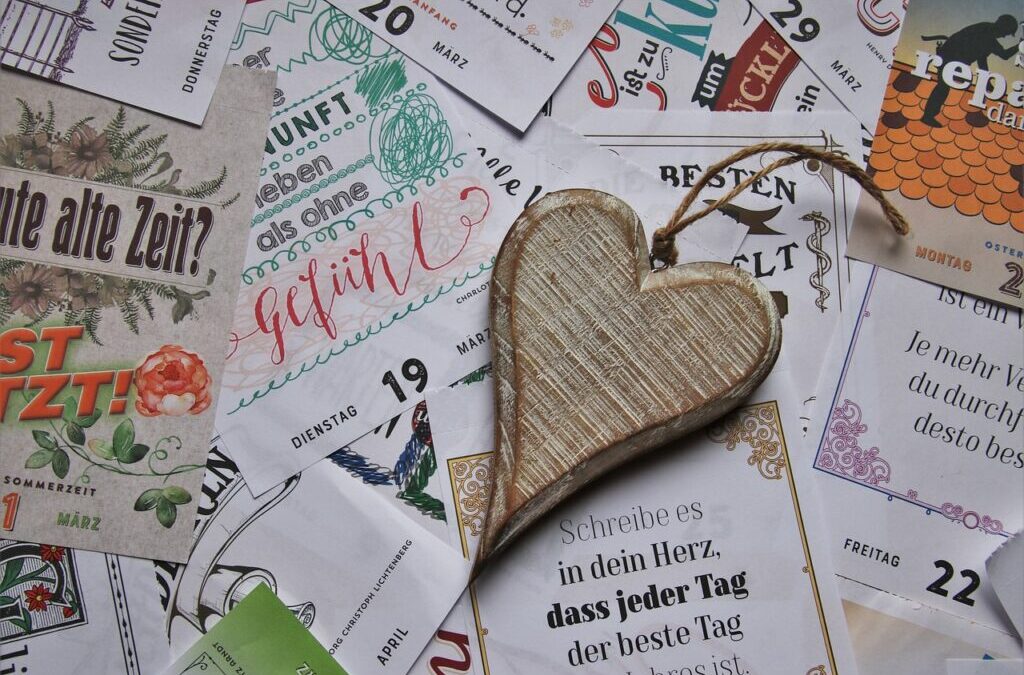 SONDER
DONNERSTAG
20
ANFANG
MÄRZ
ist zu
um
29
MÄRZ
HENRY
repa
MONTAG
OSTER
2
alte Zeit?
ST
TZT!
SOMMERZEIT
1
MÄRZ
UNFT
leben
als ohne
Gefühl
CHARLOT
19
DIENSTAG
MÄRZ
BESTEN
ELT
ist ein
Je mehr
du durchf
desto bes
FREITAG
22
Schreibe es
in dein Herz,
dass jeder Tag
der beste Tag
ist.
ORG CHRISTOPH LICHTENBERG
APRIL
ARNDT